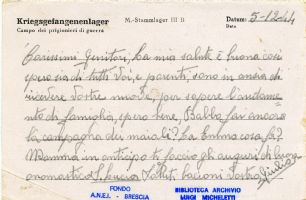 Kriegsgefangenenlager
Campo dei prigionieri di guerra
M.-Stammlager III B
Datum: 5-12-44
Data
Carissimi Genitori, La mia salute è buona così
spero sia di tutti Voi, e parenti, sono in ansia di
ricevere Vostre nuove, per sapere l'andamen-
to di famiglia, spero bene, Babbo fai ancora
la campagna dei maiali? La Emma cosa fà?
Mamma in anticipo ti faccio gli auguri di buon
onomastico S. Lucia Saluti baci Vostro
FONDO
A.N.E.I. - BRESCIA
BIBLIOTECA ARCHIVIO
LUIGI MICHELETTI